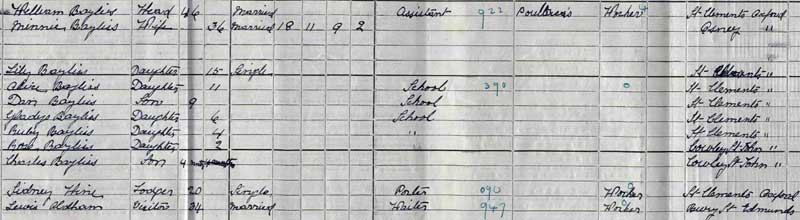 William Bayliss Head 46 Married Assistant 922 Poulterers Worker St Clements Oxford
Minnie Bayliss Wife 36 Married 18 11 9 2 Osney "
Lily Bayliss Daughter 15 Single St Clements "
Alice Bayliss Daughter 11 School 390 0 St Clements "
Dan Bayliss Son 9 School St Clements "
Gladys Bayliss Daughter 6 School St Clements "
Ruby Bayliss Daughter 4 " St Clements "
Rose Bayliss Daughter 2 Cowley St John "
Charles Bayliss Son 4 Cowley St John "
Sidney Hine Lodger 20 Single Porter 090 Worker St Clements Oxford
Lewis Oldham Visitor 34 Married Waiter 947 Worker Bury St Edmunds